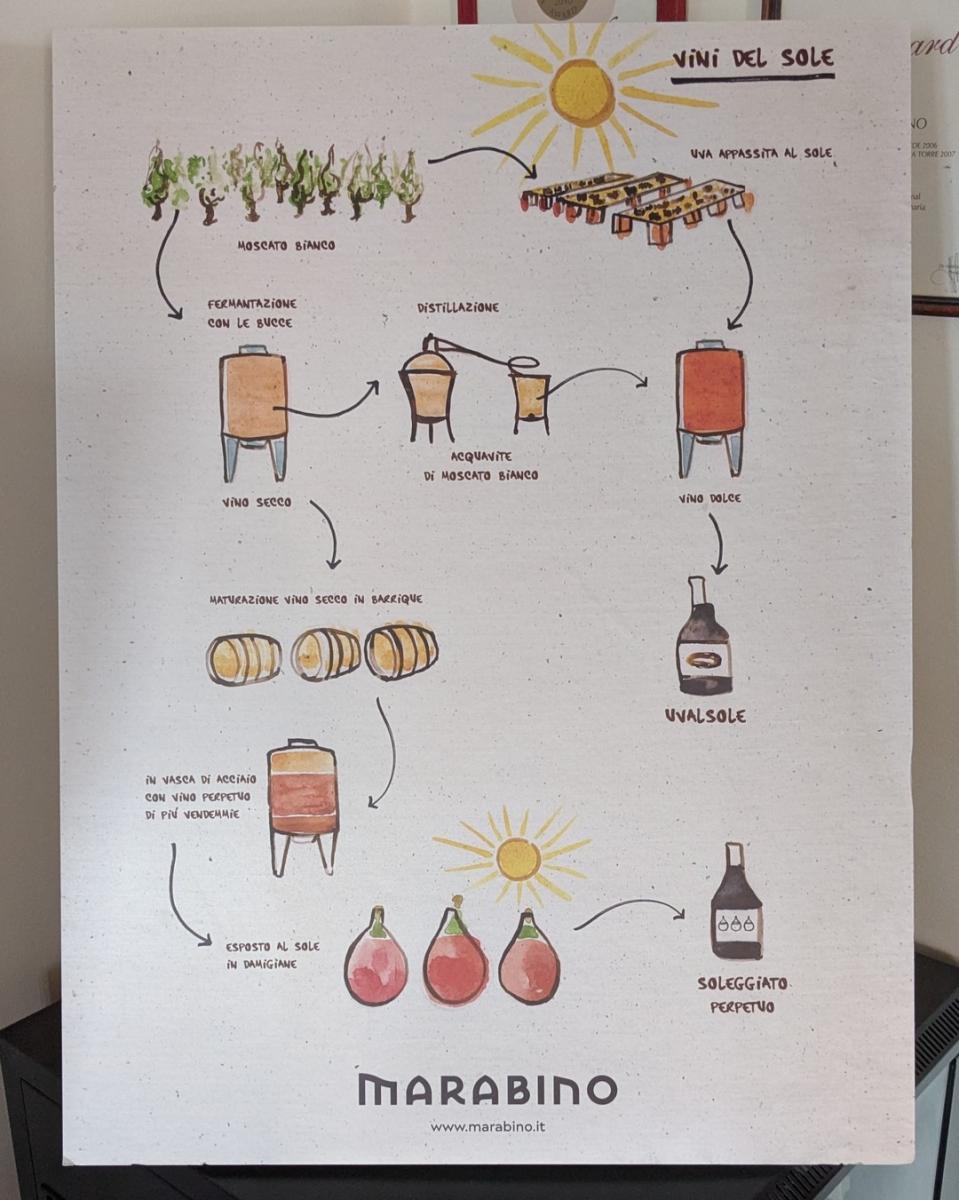 VINI DEL SOLE
UVA APPASSITA AL SOLE
MOSCATO BIANCO
FERMANTAZIONE
CON LE BUCCE
DISTILLAZIONE
ACQUAVITE
DI MOSCATO BIANCO
VINO SECCO
VINO DOLCE
MATURAZIONE VINO SECCO IN BARRIQUE
UVALSOLE
IN VASCA DI ACCIAIO
CON VINO PERPETUO
DI PIÚ VENDEMMIE
ESPOSTO AL SOLE
IN DAMIGIANE
SOLEGGIATO
PERPETUO
MARABINO
www.marabino.it
AWARD
ard
NO
DE 2006
A TORRE 2007